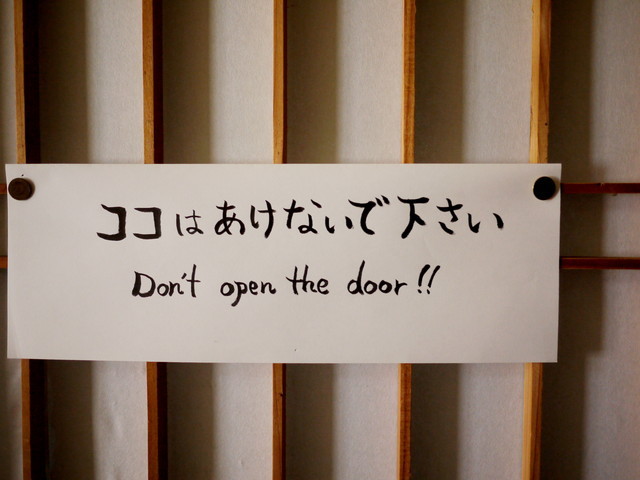 ココはあけないで下さい
Don't open the door!!